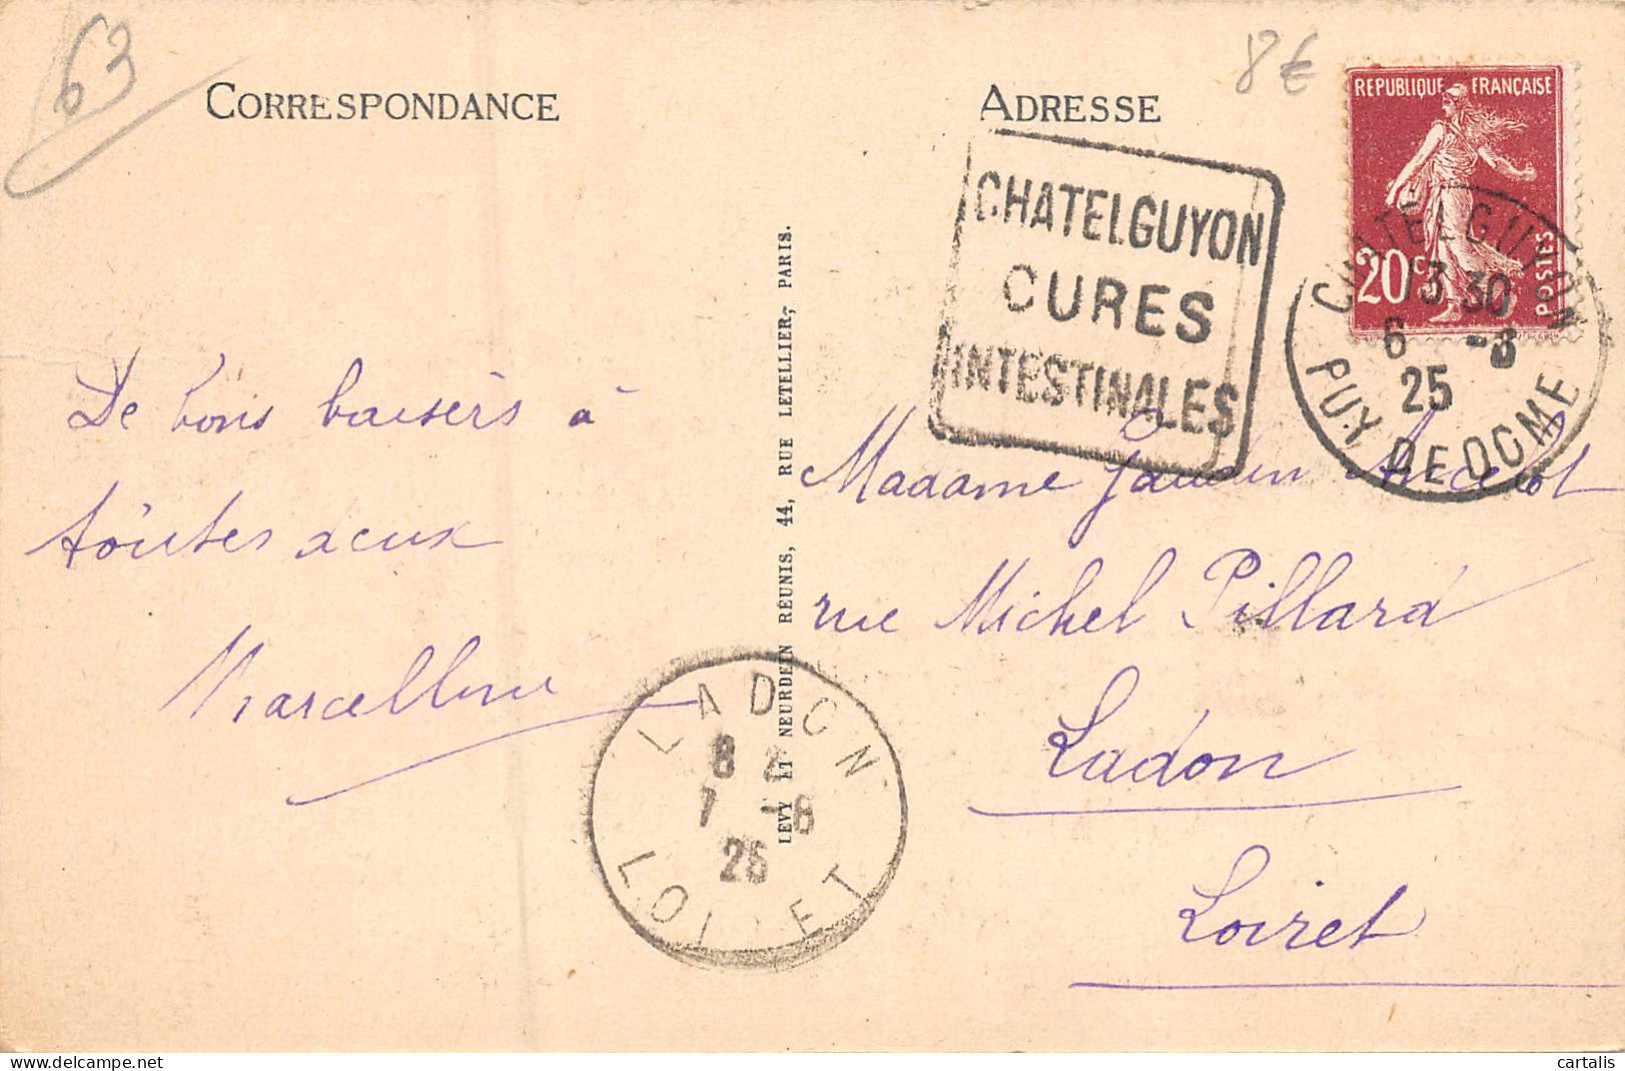 63
CORRESPONDANCE
ADRESSE
8€
REPUBLIQUE FRANÇAISE
20c
POSTES
CHATELGUYON
CURES
INTESTINALES
CHATELGUYON
13 30
6 -8
25
PUY DE DOME
De bons baisers à
toutes deux
Marcelline
LEVY ET NEURDEIN RÉUNIS, 44, RUE LETELLIER, PARIS.
Madame Ancelot
rue Michel Pillard
Ladon
Loiret
LADON
8
7 -8
25
LOIRET
delcampe.net
cartalis